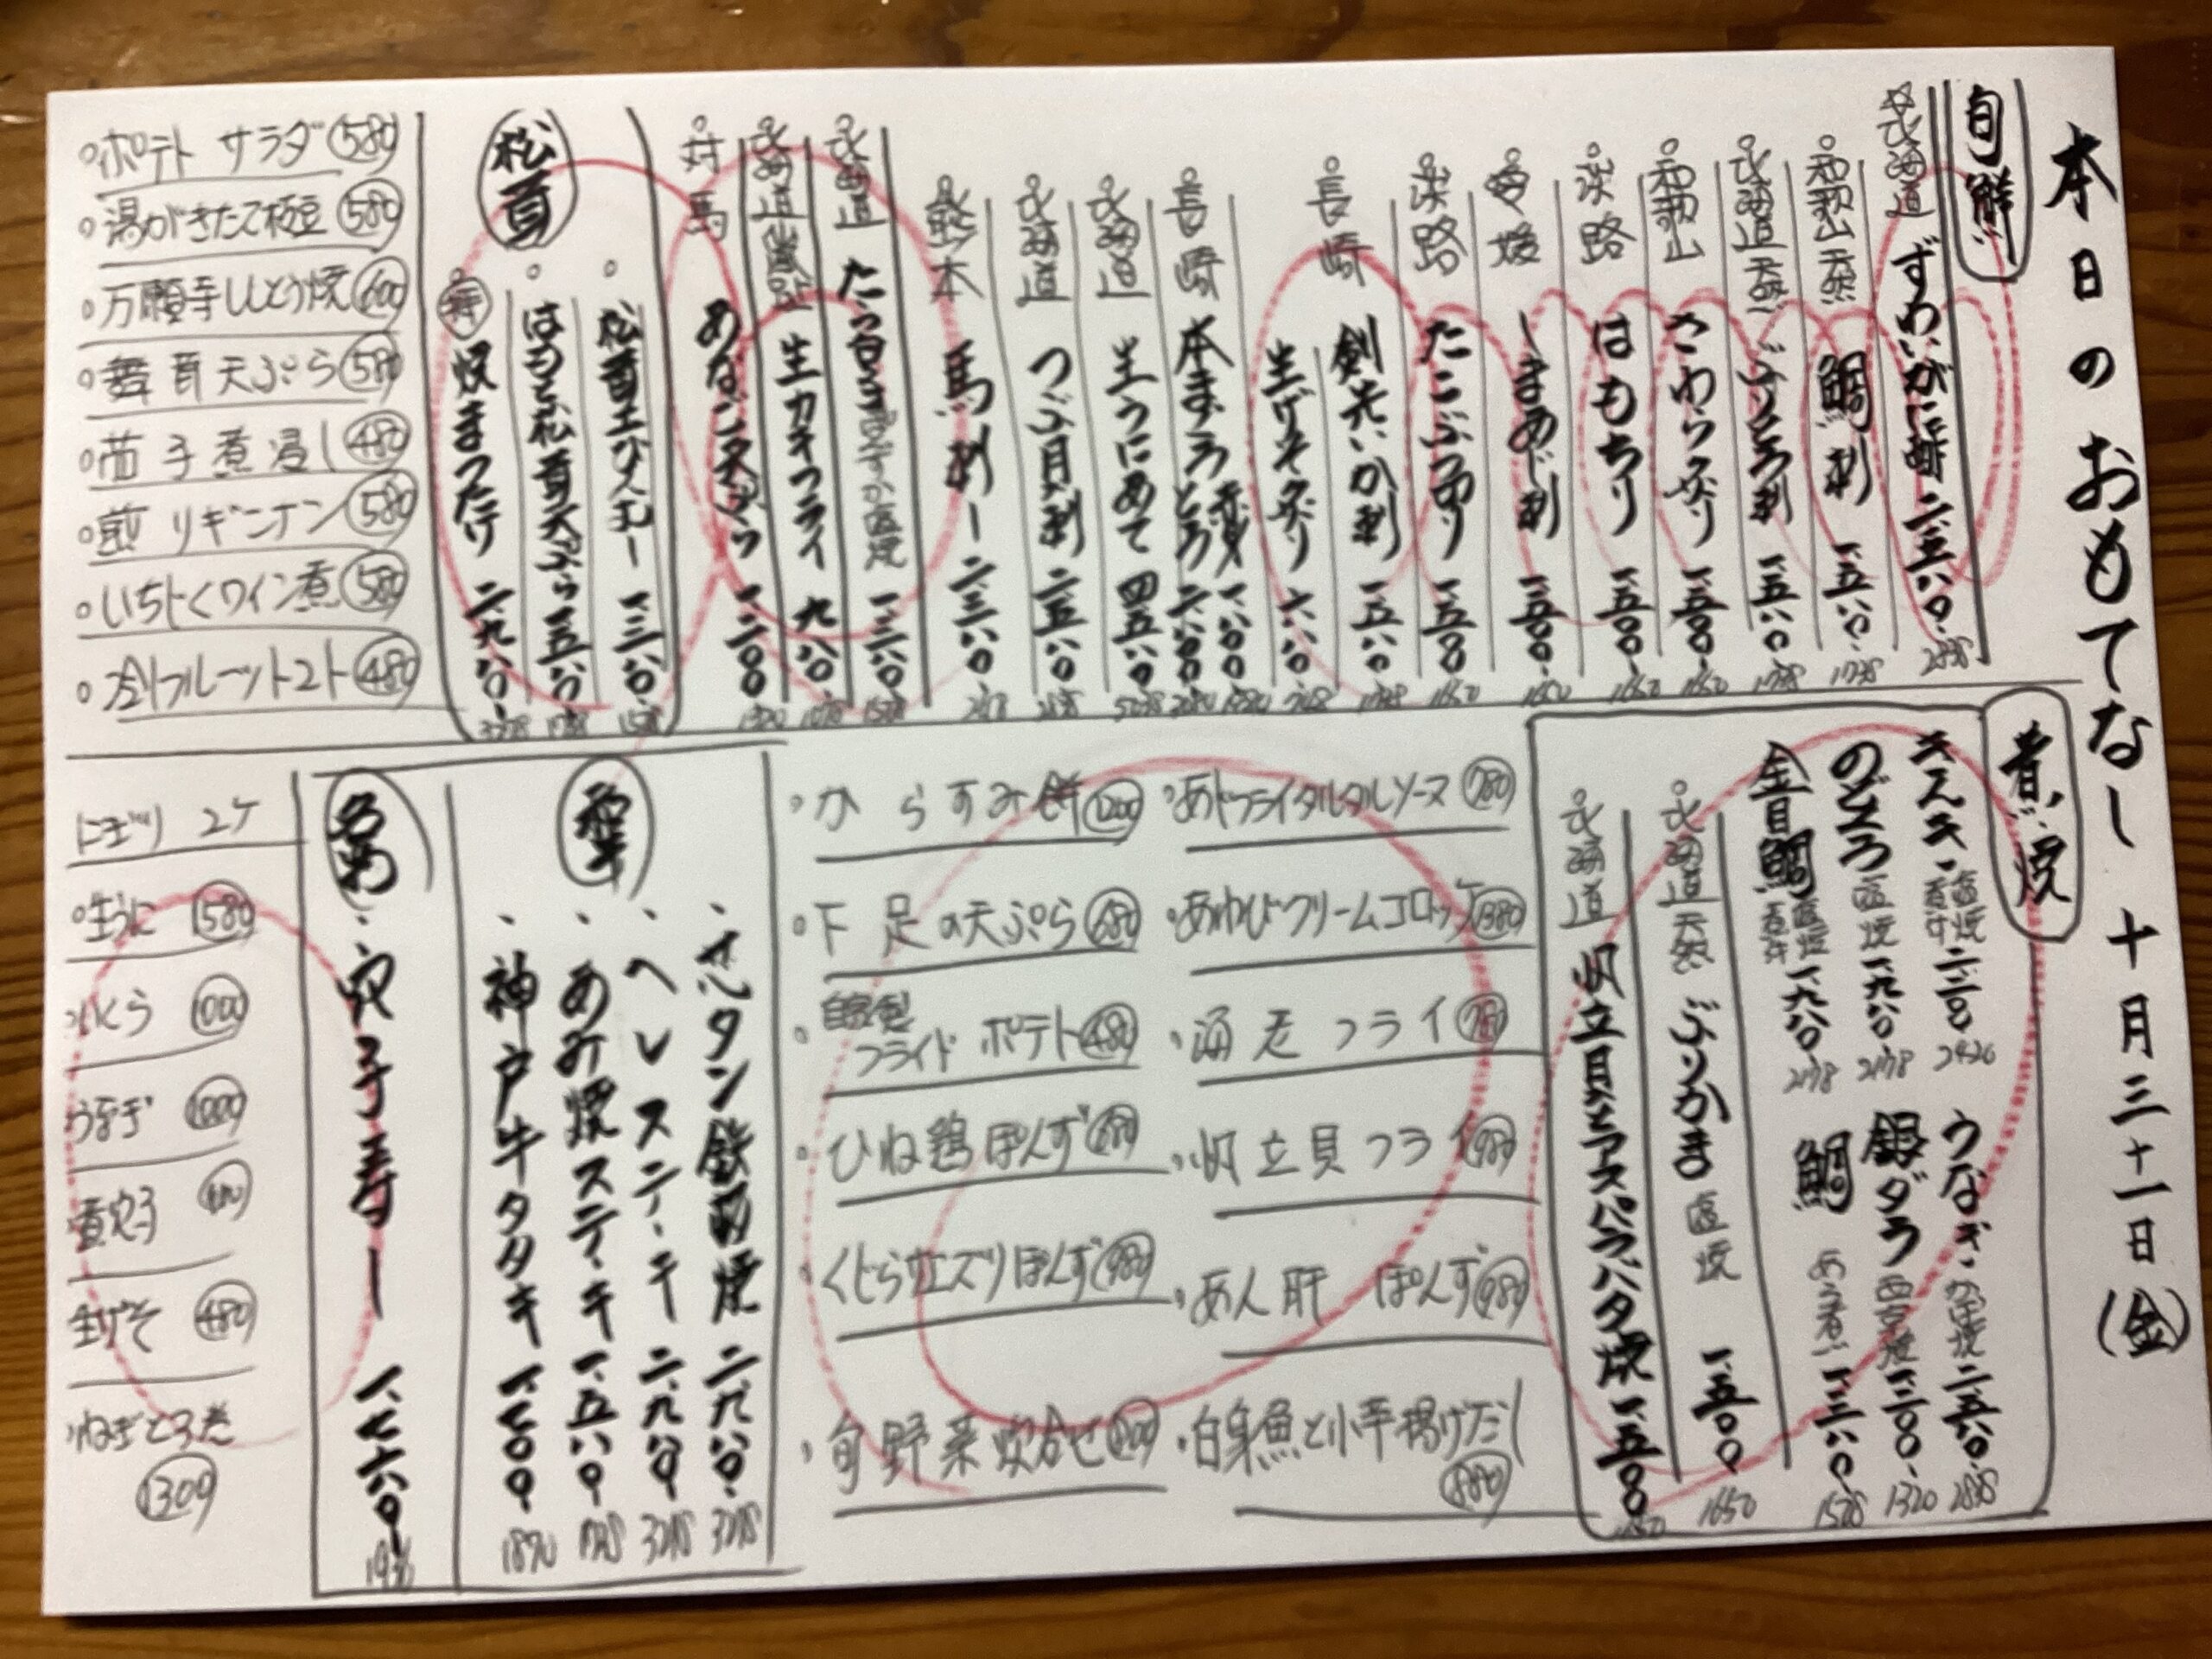 本日のおもてなし 十月三十一日(金)
旬鮮
☆北海道 ずわいがに酢 二、五八〇 2838
和歌山 天然 鯛刺 一、五八〇 1738
北海道 天然 ぶりとろ刺 一、五八〇 1738
和歌山 さわらタタ 一、五〇〇 1650
淡路 はもちり 一、五〇〇 1650
愛媛 しまあじ刺 一、五〇〇 1650
淡路 たこぶつ切り 一、五〇〇 1650
長崎 剣先いか刺 一、五八〇 1738
生げそ 六八〇 748
長崎 本まぐろ 赤身 一、八〇〇 1980
とろ 二、八〇〇 3080
北海道 生うにあて 四、五八〇 5038
北海道 つぶ貝刺 二、五八〇 2838
熊本 馬刺し 二、三八〇 2618
北海道 たら白子 ぽんず か 塩焼 一、三八〇 1518
北海道 生カキフライ 九八〇 1078
対馬 あなご天ぷら 一、二〇〇 1320
松茸
松茸土びんむし 一、三八〇 1518
はもと松茸天ぷら 一、五八〇 1738
焼まつたけ 二、九八〇 3278
ポテトサラダ 580
湯がきたて枝豆 580
万願寺ししとう焼 600
舞茸天ぷら 580
茄子煮浸し 480
煎りギンナン 580
いちじくワイン煮 580
冷しフルーツトマト 480
煮・焼
キンキ 塩焼 煮付 二、二〇〇 2420
のどぐろ 塩焼 一、九八〇 2178
金目鯛 塩焼 煮付 一、九八〇 2178
うなぎ かば焼 二、五八〇 2838
銀ダラ 西京焼 一、二〇〇 1320
鯛 あら煮 一、三八〇 1518
北海道 天然 ぶりかま 塩焼 一、五〇〇 1650
北海道 帆立貝とアスパラバタ焼 一、五〇〇 1650
あじフライタルタルソース 780
あわびクリームコロッケ 1380
海老フライ 780
帆立貝フライ 980
あん肝ぽんず 980
白身魚と小芋揚げだし 880
からすみ餅 1200
下足の天ぷら 680
自家製フライドポテト 480
ひね鶏ぽんず
くじらサエズリぽんず 980
旬野菜炊合せ
和牛
芯タン鉄板焼 二、九八〇 3278
ヘレステーキ 二、九八〇 3278
あみ焼ステーキ 一、五八〇 1738
神戸牛タタキ 一、七〇〇 1870
名物
穴子寿し 一、七六〇 1936
にぎり 2ケ
生うに 1580
いくら 1000
うなぎ 1000
煮穴子
生げそ 480
ねぎとろ巻 1300